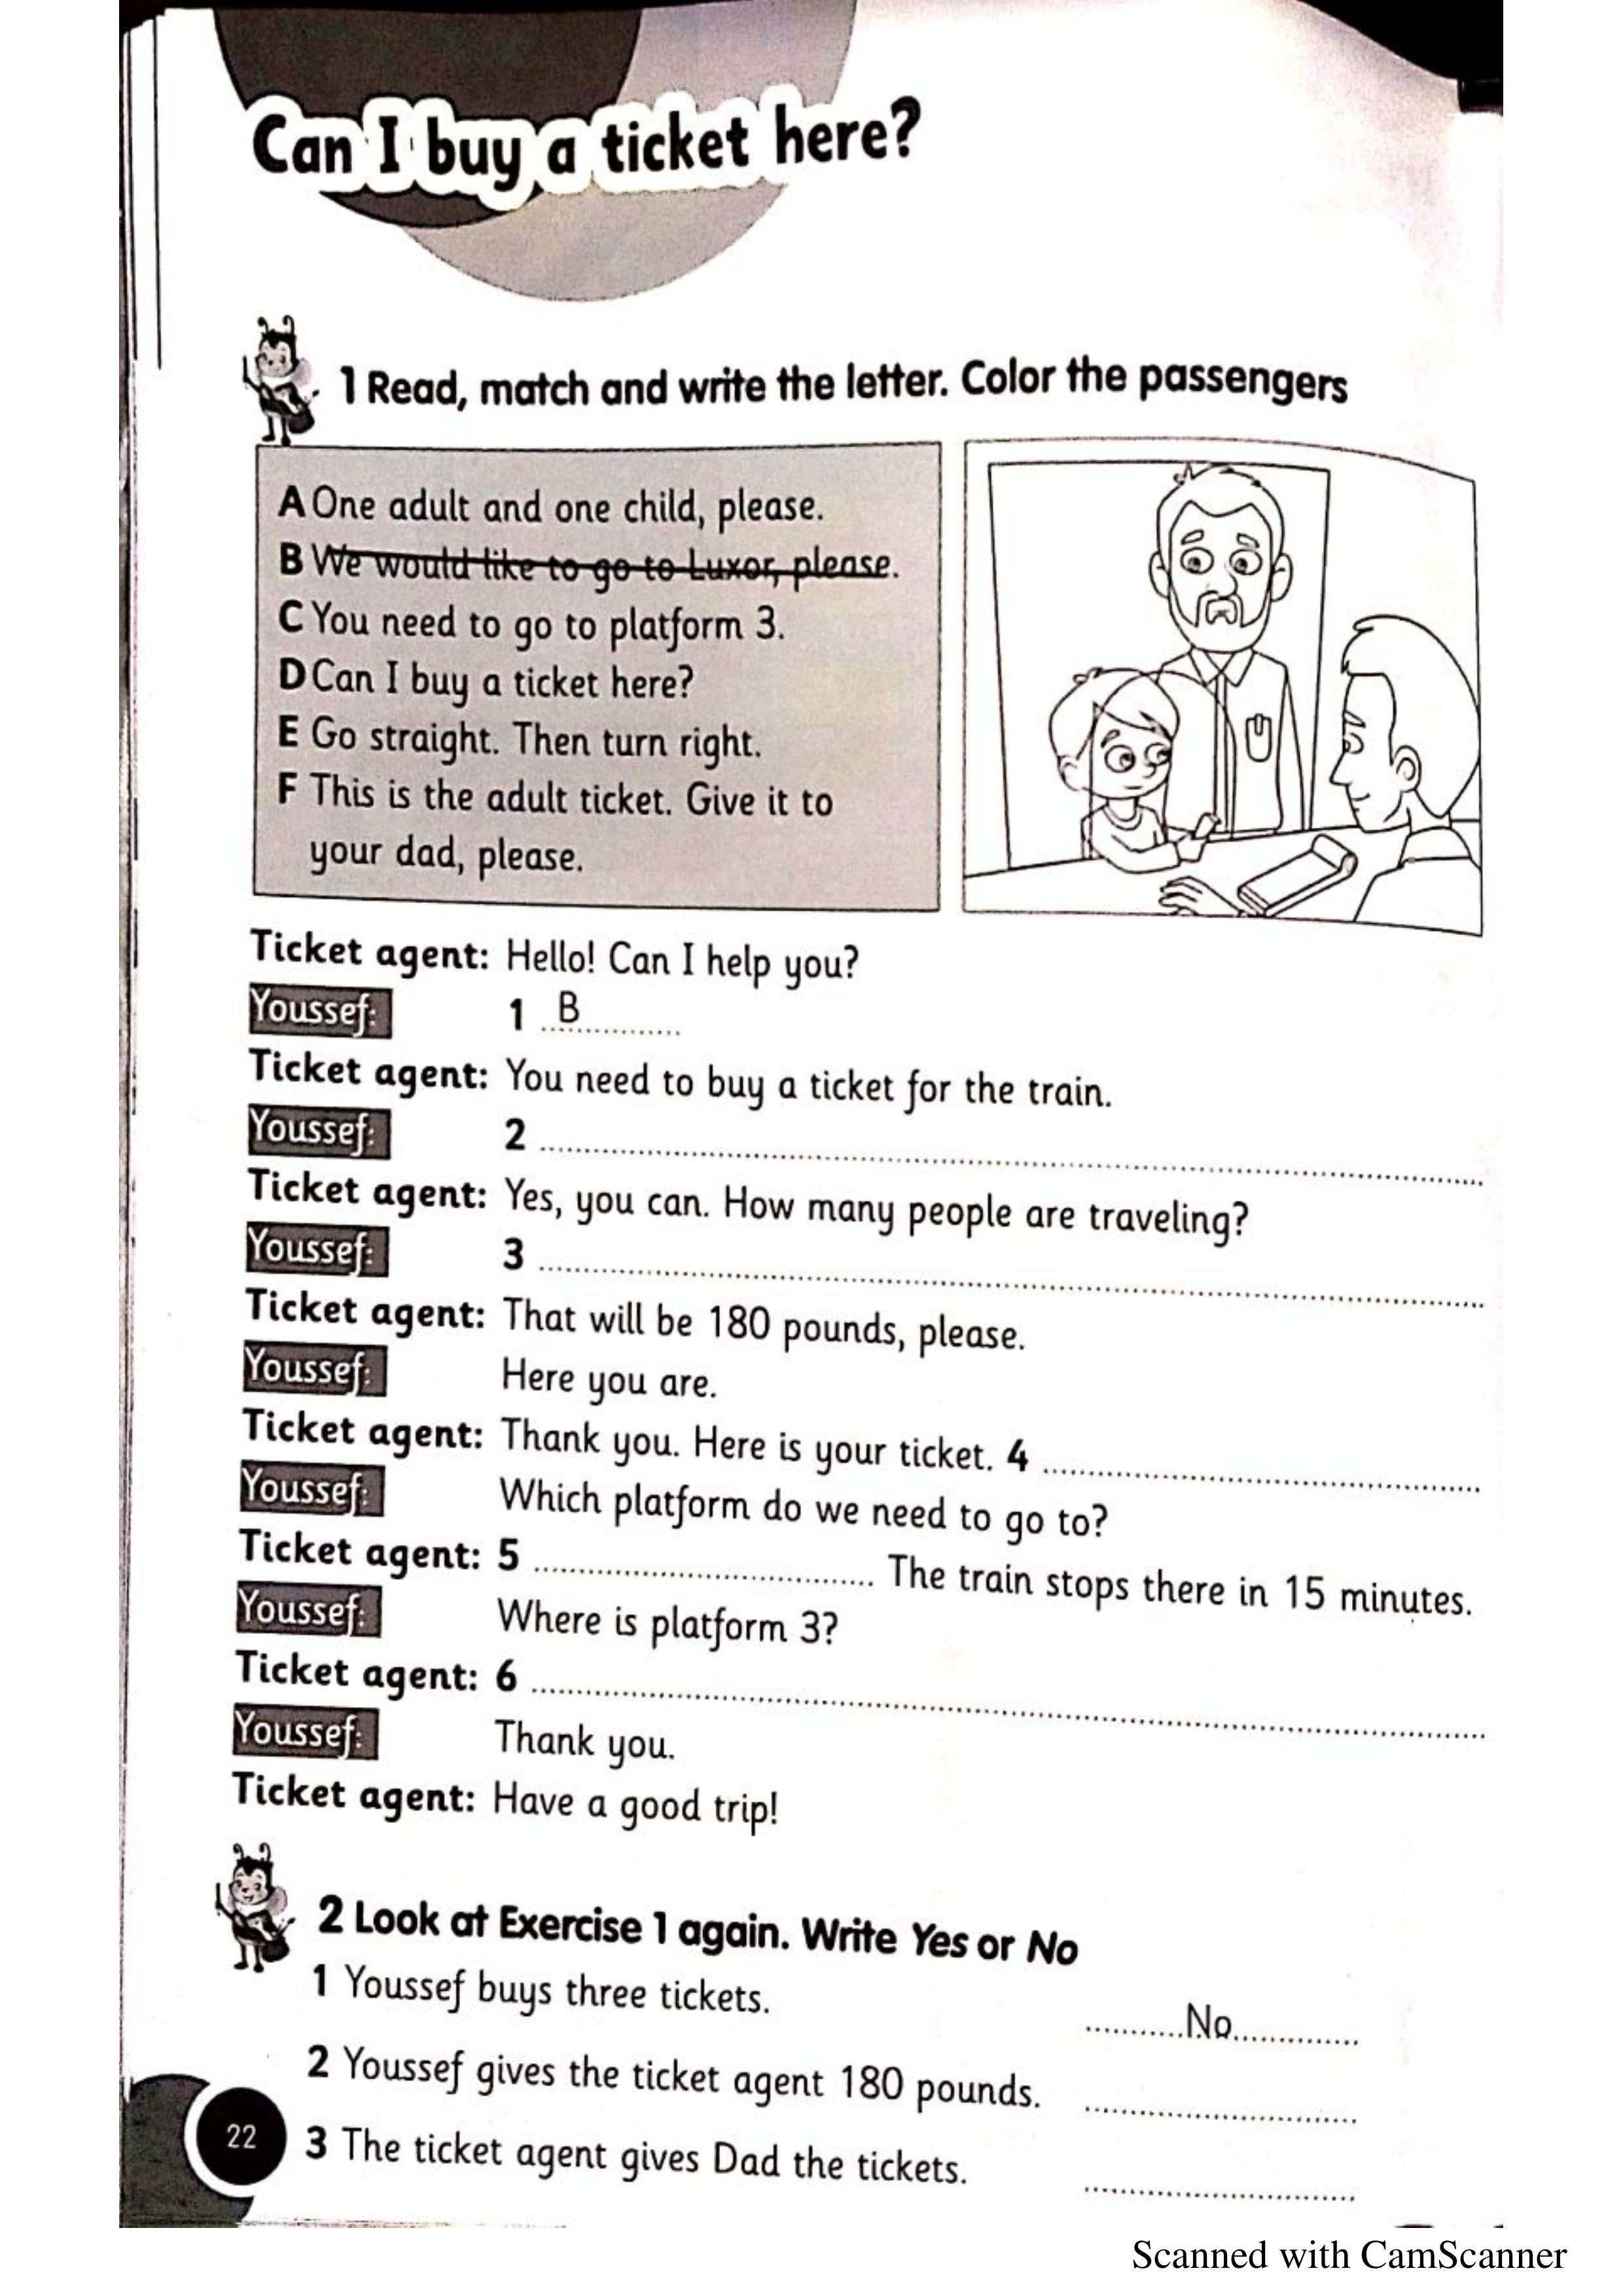 Can I buy a ticket here?
1 Read, match and write the letter. Color the passengers
A One adult and one child, please.
B We would like to go to Luxor, please.
C You need to go to platform 3.
D Can I buy a ticket here?
E Go straight. Then turn right.
F This is the adult ticket. Give it to
your dad, please.
Ticket agent: Hello! Can I help you?
Youssef: 1 B
Ticket agent: You need to buy a ticket for the train.
Youssef: 2
Ticket agent: Yes, you can. How many people are traveling?
Youssef: 3
Ticket agent: That will be 180 pounds, please.
Youssef: Here you are.
Ticket agent: Thank you. Here is your ticket. 4
Youssef: Which platform do we need to go to?
Ticket agent: 5 The train stops there in 15 minutes.
Youssef: Where is platform 3?
Ticket agent: 6
Youssef: Thank you.
Ticket agent: Have a good trip!
2 Look at Exercise 1 again. Write Yes or No
1 Youssef buys three tickets. No
2 Youssef gives the ticket agent 180 pounds.
3 The ticket agent gives Dad the tickets.
22
Scanned with CamScanner